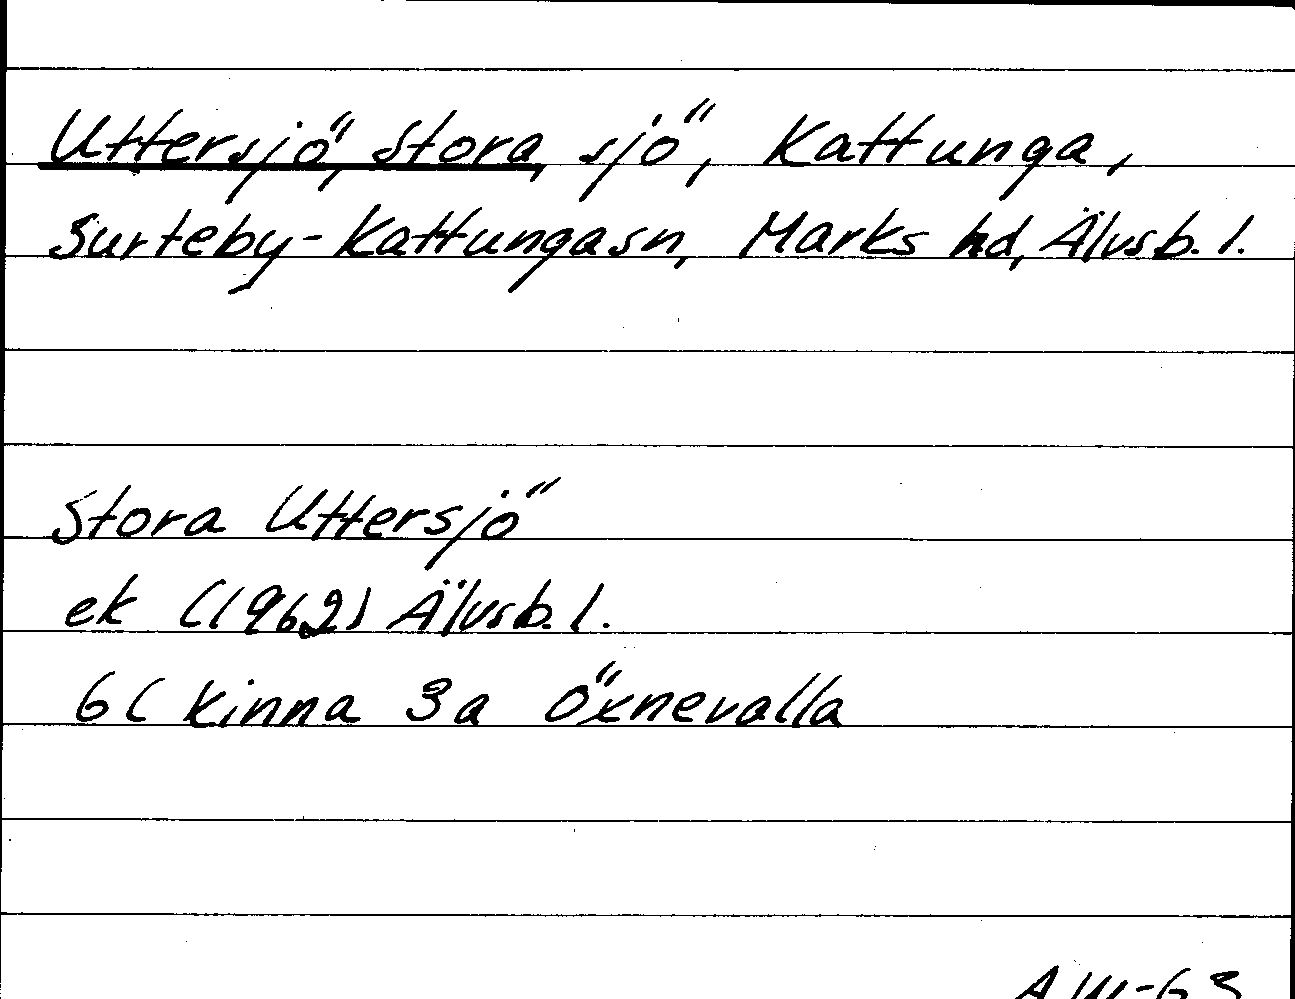 Uttersjö, Stora, sjö, Kattunga,
Surteby-Kattunga sn, Marks hd, Älvsb. l.
Stora Uttersjö
ek (1962) Älvsb. l.
6C Kinna 3a Öxnevalla